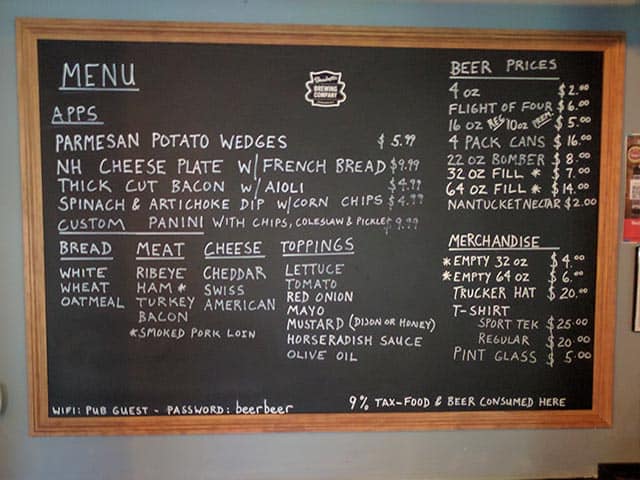 MENU
BREWING
COMPANY
APPS
PARMESAN POTATO WEDGES $5.99
NH CHEESE PLATE W/ FRENCH BREAD $9.99
THICK CUT BACON W/ AIOLI $4.99
SPINACH & ARTICHOKE DIP W/ CORN CHIPS $4.99
CUSTOM PANINI WITH CHIPS, COLESLAW & PICKLE $9.99
BREAD
WHITE
WHEAT
OATMEAL
MEAT
RIBEYE
HAM *
TURKEY
BACON
*SMOKED PORK LOIN
CHEESE
CHEDDAR
SWISS
AMERICAN
TOPPINGS
LETTUCE
TOMATO
RED ONION
MAYO
MUSTARD (DIJON OR HONEY)
HORSERADISH SAUCE
OLIVE OIL
BEER PRICES
4 OZ $2.00
FLIGHT OF FOUR $6.00
16 OZ REG 10OZ PREM $5.00
4 PACK CANS $16.00
22 OZ BOMBER $8.00
32 OZ FILL * $7.00
64 OZ FILL * $14.00
NANTUCKET NECTAR $2.00
MERCHANDISE
*EMPTY 32 OZ $4.00
*EMPTY 64 OZ $6.00
TRUCKER HAT $20.00
T-SHIRT
SPORT TEK $25.00
REGULAR $20.00
PINT GLASS $5.00
WIFI: PUB GUEST - PASSWORD: beerbeer
9% TAX-FOOD & BEER CONSUMED HERE